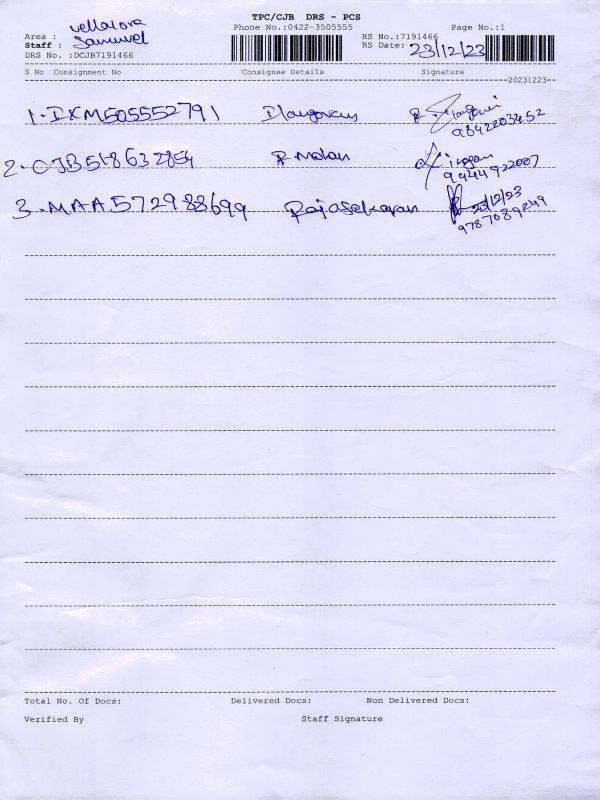 TPC/CJB DRS - PCS
Area :
Phone No.:0422-3505555
Page No.:1
Staff : Samuvel
RS No.:7191466
DRS No. :DCJB7191466
RS Date: 23/12/23
S No Consignment No Consignee Details Signature
20231223
1. IXM505552791 9842203452
2. CJB518632854 R Mohan 9444922007
3. MAA572988699 Rajasekaran 23/12/23
9787089249
Total No. Of Docs: Delivered Docs: Non Delivered Docs:
Verified By Staff Signature